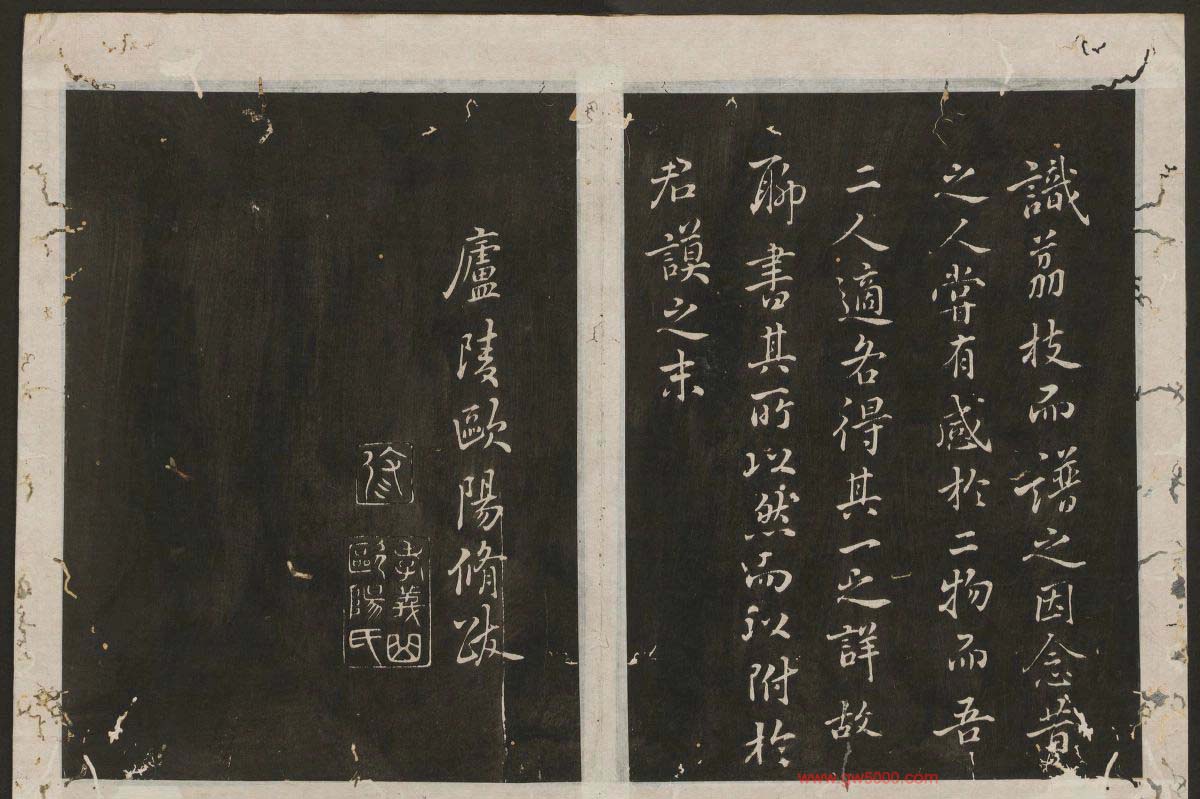 識荔枝而譜之因念昔
之人嘗有感於二物而吾
二人適各得其一之詳故
聊書其所以然而以附於
君謨之末
廬陵歐陽脩跋
修
歐陽氏
www.gw5000.com